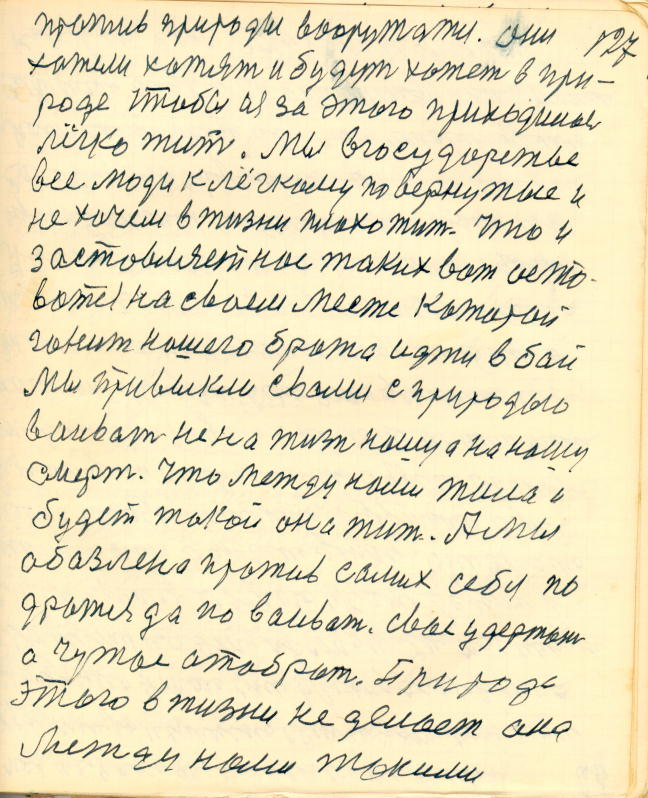 против природы вооружати. они 127
хотели хотят и будут хотет в при-
роде Чтобы из за этого приходилос
лёгко жит. Мы в государстве
все люди к лёгкому повернутые и
не хочем в жизни плохо жит. Что и
застовляет нас таких вот оста-
ватся на своем месте Каторой
гонит нашего брата идти в бай
Мы привыкли свами с природыю
ваиват не на жизт нашу а на нашу
смерт. Что между нами жила и
будет такой она жит. А мы
обазлена против самих себя по
дратся да по ваиват. свое удержат
а чужое отобрат. Природа
этого в жизни не делает она
Между нами такими